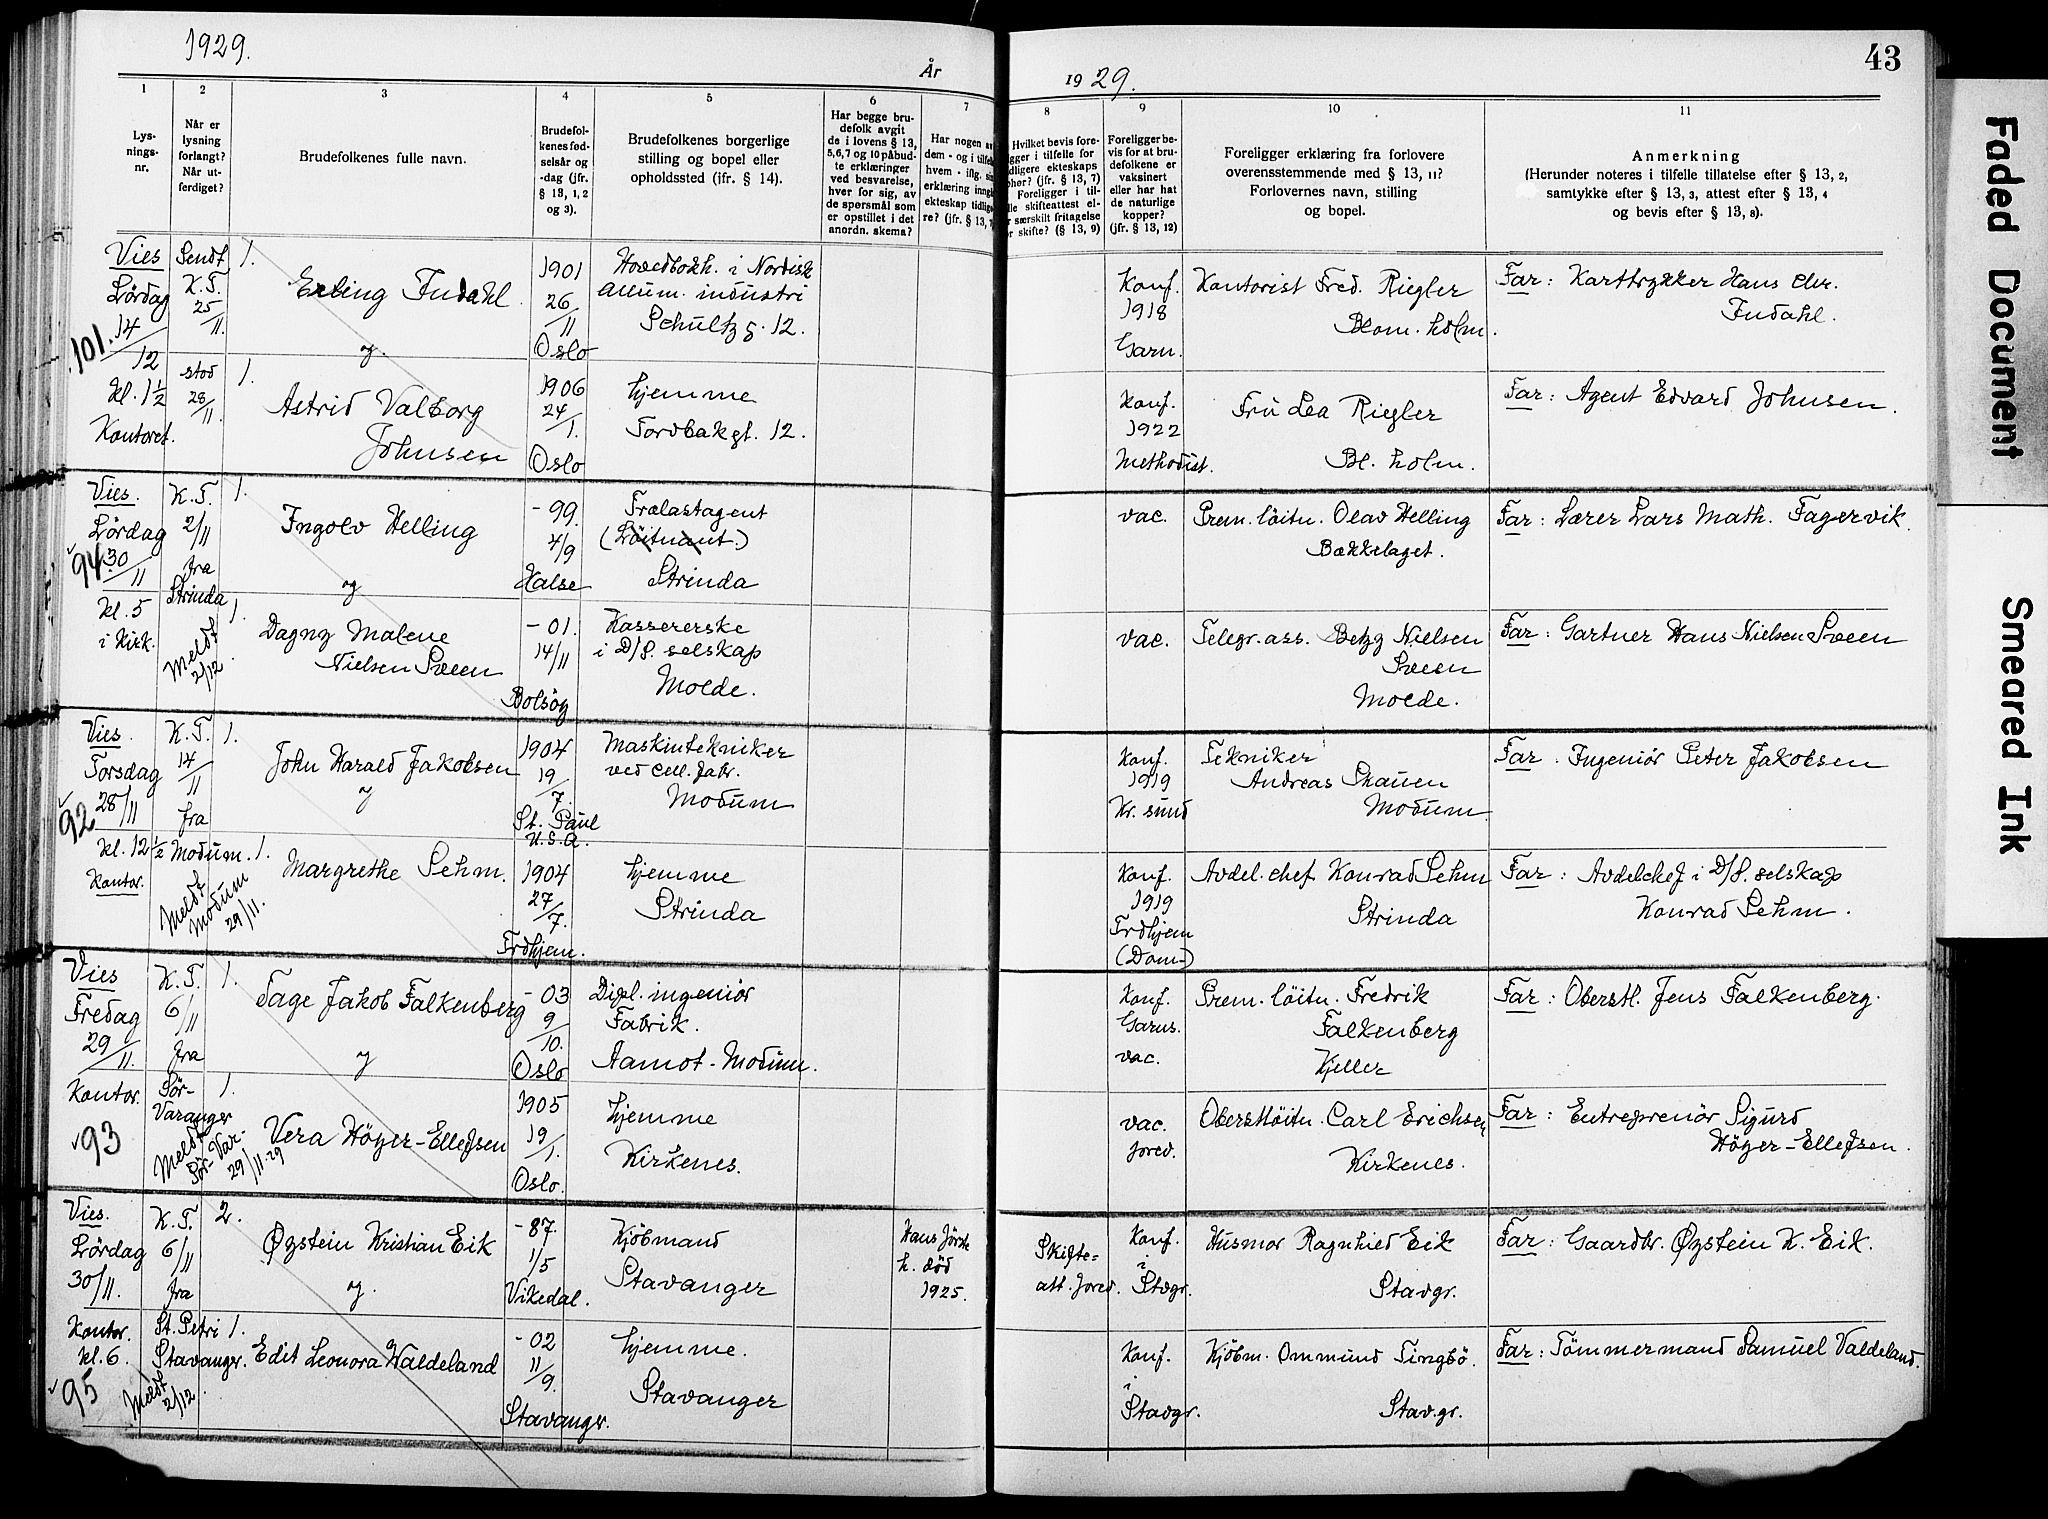 1929.
År
1
2
3
4
5
6
7
Lys-
nings-
nr.
Når er
lysning
forlangt?
Når ut-
ferdiget?
Brudefolkenes fulle navn.
Brudefol-
kenes fød-
selsår og
-dag (jfr.
§ 13, 1, 2
og 3).
Brudefolkenes borgerlige
stilling og bopel eller
opholdssted (ifr. § 14).
Har begge bru-
defolk avgit
de i lovens § 13,
5,6,7 og 10 påbud-
te erklæringer
ved besvarelse,
hver for sig, av
de spørsmål som
er opstillet i det
anordn. skema?
Har nogen av
dem - og i tilfe
hvem - iflg. si
erklæring inng
ekteskap tidlig
re? (jfr. § 13,
Vies
Lördag
14/12
kl. 1 1/2
Kontoret.
101.
Sendt
K.T.
25/11.
stod
28/11
1.
Erling Indahl
og
1.
Astrid Valborg
Johnsen
1901
26/11
Oslo
1906
24/1.
Oslo
Hovedbokh. i Nordisk
Allum. industri
Schultz g. 12.
hjemme
Tordbakgt. 12.
Vies.
Lördag
30/11
kl. 5
i Kirk.
94
K.T.
2/11
fra
Strinda
Meldt
2/12
1.
Ingolv Helling
og
1.
Dagny Malene
Nielsen Sveen
- 99.
4/9
Halse
- 01.
14/11
Bolsöy
Trælastagent
(Löitnant.)
Strinda
Kassererske
i D/S. selskap
Molde.
Vies.
Torsdag
28/11
kl. 12 1/2
Kontor.
92
K.T.
14/11
fra
Modum.
Meldt
Modum
29/11.
1.
John Harald Jakobsen
og
1.
Margrethe Sehm.
1904
19/7.
St. Paul
U.S.A.
1904
27/7.
Trdhjem.
Maskintekniker
ved Cell. fabr.
Modum
hjemme
Strinda
Vies
Fredag
29/11.
Kontor.
93
K.T.
6/11
fra
Sör-
Varanger
Meldt
Sör-Var-
29/11-29
1.
Tage Jakob Falkenberg
og
1.
Vera Höyer-Ellefsen
- 03
9/10.
Oslo
1905
19/1.
Oslo.
Dipl. ingeniör
Fabrik.
Aamot - Modum.
hjemme
Kirkenes.
Vies.
Lördag
30/11.
Kontor.
kl. 6.
95
K.T.
6/11
fra
St. Petri
Stavanger.
Meldt
2/12.
2.
Øystein Kristian Eik
og.
1.
Edit Leonora Waldeland
- 87.
1/5
Vikedal.
- 02
11/9.
Stavanger.
Kjöbmand
Stavanger
hjemme.
Stavanger
Hans förste
h. död
1925.
1929.
43
8
9
10
11
Hvilket bevis fore-
gger i tilfelle for
dligere ekteskaps
phør? (jfr. § 13, 7)
Foreligger i til-
lle skifteattest el-
r særskilt fritagelse
or skifte? (§ 13, 9)
Foreligger be-
vis for at bru-
defolkene er
vaksinert
eller har hat
de naturlige
kopper?
(jfr. § 13, 12)
Foreligger erklæring fra forlovere
overensstemmende med § 13, 11?
Forlovernes navn, stilling
og bopel.
Anmerkning
(Herunder noteres i tilfelle tillatelse efter § 13, 2,
samtykke efter § 13, 3, attest efter § 13, 4
og bevis efter § 13, 8).
Konf.
1918
Garn.
Kontorist Fred. Riegler
Blom. holm.
Far: Karttrykker Hans Chr.
Indahl.
Konf.
1922
Methodist.
Fru Lea Riegler
Bl. holm.
Far: Agent Edvard Johnsen.
vac.
Prem. löitn. Olav Helling
Bækkelaget.
Far: Lærer Lars Math. Fagervik.
vac.
Telegr. ass. Betzy Nielsen
Sveen
Molde.
Far: Gartner Hans Nielsen Sveen
Konf.
1919
Kr. sund
Tekniker
Andreas Skauen
Modum
Far: Ingeniör Peter Jakobsen
Konf.
1919
Trdhjem
(Dom-)
Avdel. chef Konrad Sehm
Strinda
Far: Avdelchef i D/S. selskap
Konrad Sehm.
Konf.
Garns.
vac.
Prem. löitn. Fredrik
Falkenberg
Kjeller
Far: Oberstl. Jens Falkenberg.
vac.
forev.
Oberstlöitn. Carl Erichsen
Kirkenes.
Far: Entreprenör Sigurd
Höyer-Ellefsen.
Skifte-
att. forev.
Konf.
i
Stvgr.
Husmor Ragnhild Eik
Stavgr.
Far: Gaardbr. Øystein K. Eik.
Konf.
i
Stavgr.
Kjöbm. Ommund Tingbö.
Stav.gr.
Far: Tömmermand Samuel Valdeland.
Faded Document
Smeared Ink